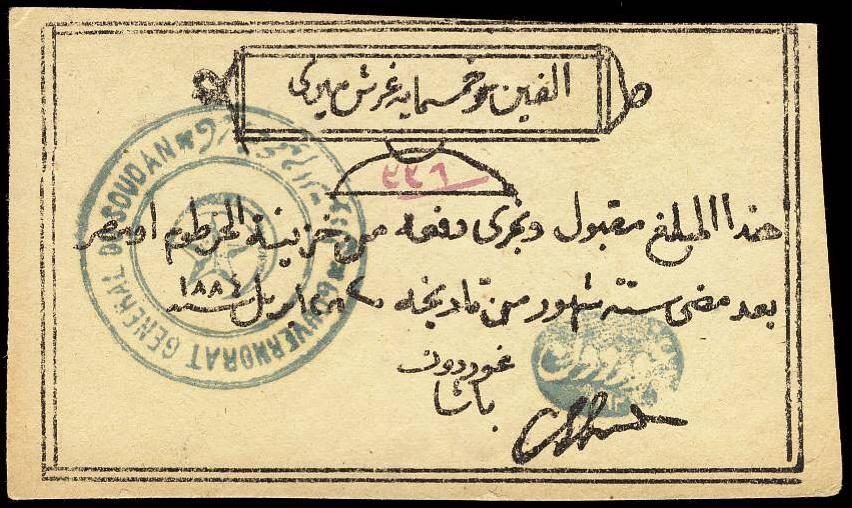 الفين وخمسمايه غرش ميري
٢٢٦
هذا المبلغ مقبول ويجرى دفعه من خزينة الخرطوم او مصر
بعد مضى ستة شهور من تاريخه ٢٥ ابريل سنة ١٨٨٤
غوردون
باشا
GOUVERNORAT GENERAL DU SOUDAN